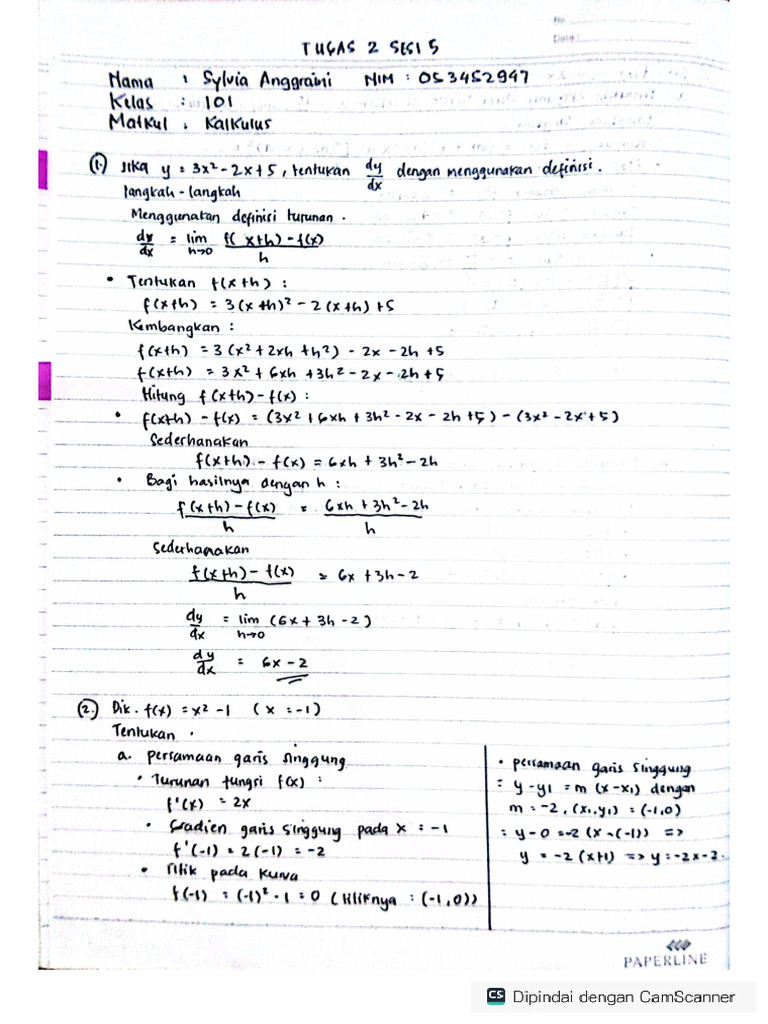 No.
Date:
TUGAS 2 SESI 5
Nama : Sylvia Anggraini NIM : 053452947
Kelas : 101
Matkul : Kalkulus
(1.) Jika y = 3x² - 2x + 5, tentukan dy/dx dengan menggunakan definisi.
langkah - langkah
Menggunakan definisi turunan .
dy/dx = lim h→0 f(x+h) - f(x) / h
• Tentukan f(x+h) :
f(x+h) = 3(x+h)² - 2(x+h) + 5
Kembangkan :
f(x+h) = 3(x² + 2xh + h²) - 2x - 2h + 5
f(x+h) = 3x² + 6xh + 3h² - 2x - 2h + 5
Hitung f(x+h) - f(x) :
• f(x+h) - f(x) = (3x² + 6xh + 3h² - 2x - 2h + 5) - (3x² - 2x + 5)
Sederhanakan
f(x+h) - f(x) = 6xh + 3h² - 2h
• Bagi hasilnya dengan h :
f(x+h) - f(x) / h = 6xh + 3h² - 2h / h
Sederhanakan
f(x+h) - f(x) / h = 6x + 3h - 2
dy/dx = lim h→0 (6x + 3h - 2)
dy/dx = 6x - 2
(2.) Dik. f(x) = x² - 1 (x = -1)
Tentukan .
a. persamaan garis singgung
• Turunan fungsi f(x) :
f'(x) = 2x
• Gradien garis singgung pada x = -1
f'(-1) = 2(-1) = -2
• Titik pada kurva
f(-1) = (-1)² - 1 = 0 (titiknya : (-1,0))
• persamaan garis singgung
= y - y1 = m (x - x1) dengan
m = -2, (x1, y1) = (-1,0)
= y - 0 = -2 (x - (-1)) =>
y = -2 (x+1) => y = -2x - 2.
PAPERLINE
CS Dipindai dengan CamScanner